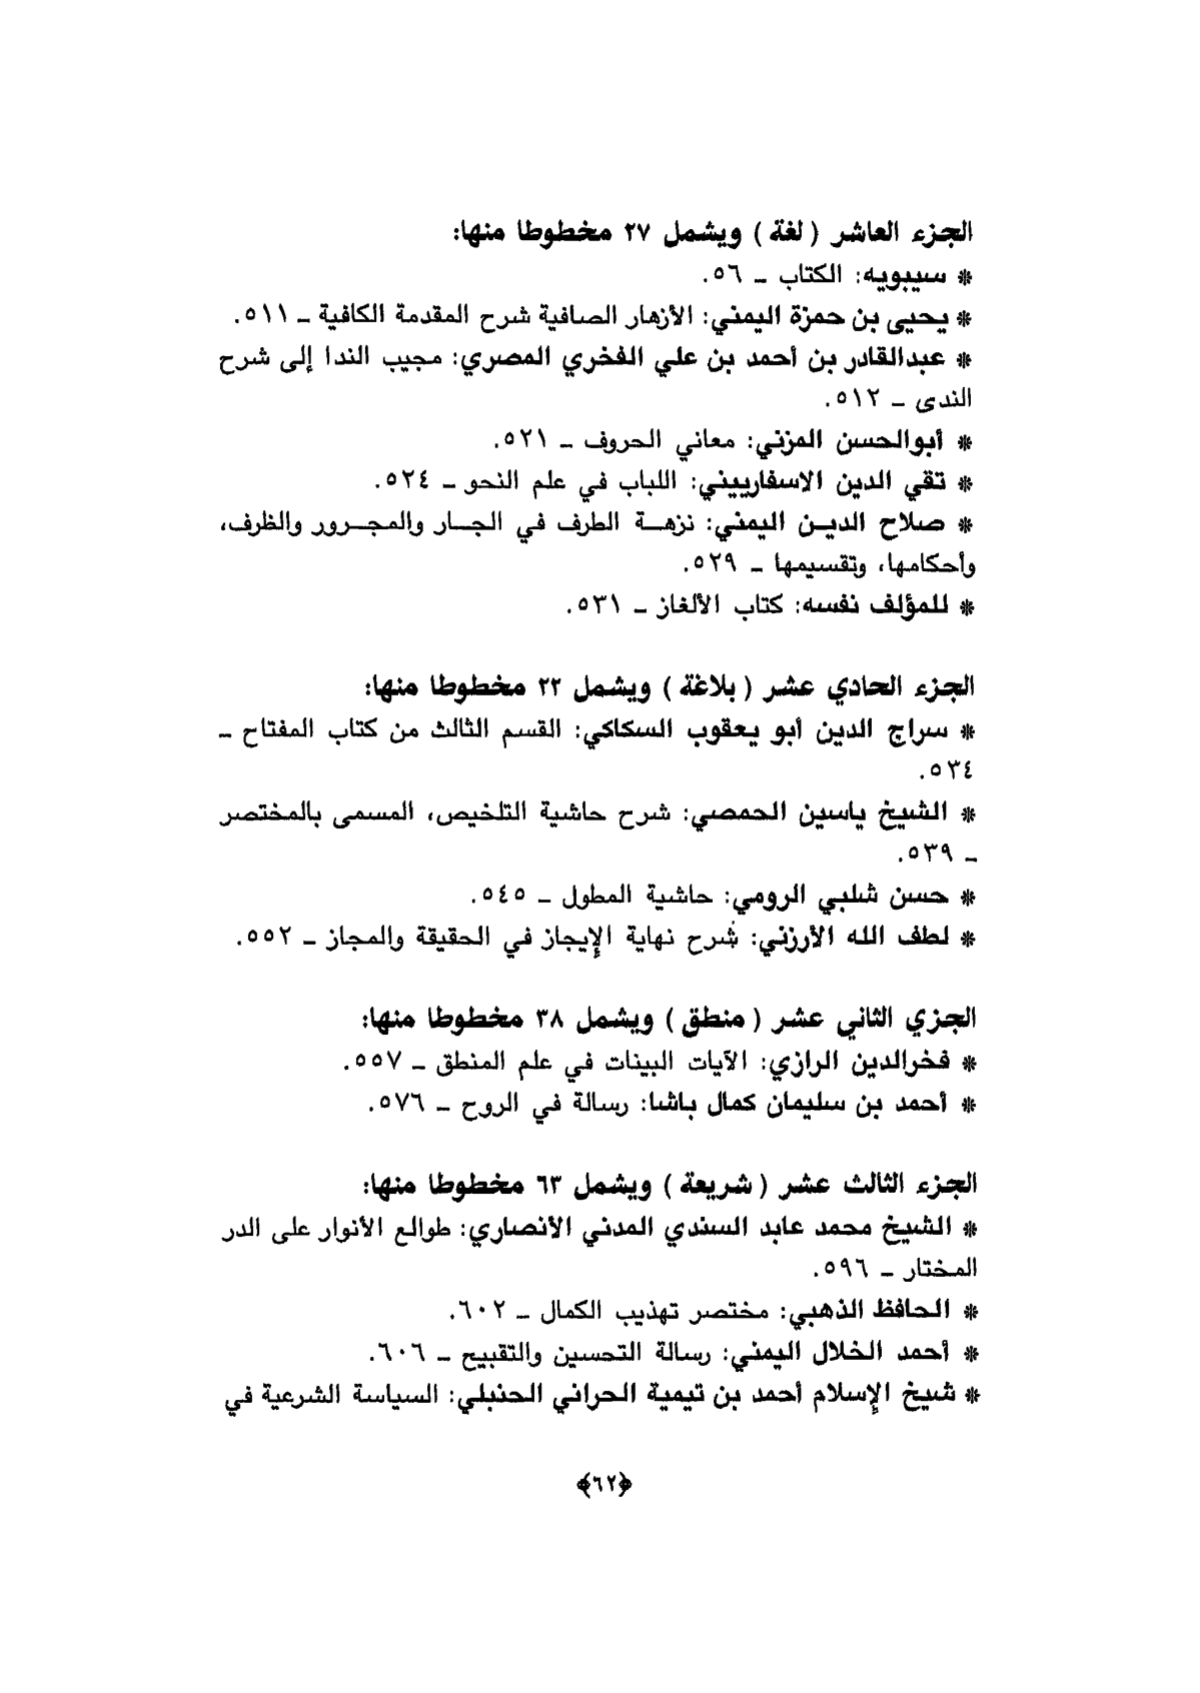 الجزء العاشر ( لغة ) ويشمل ٢٧ مخطوطا منها:
* سيبويه: الكتاب ــ ٥٦.
* يحيى بن حمزة اليمني: الأزهار الصافية شرح المقدمة الكافية ــ ٥١١.
* عبدالقادر بن أحمد بن علي الفخري المصري: مجيب الندا إلى شرح
الندى ــ ٥١٢.
* أبوالحسن المزني: معاني الحروف ــ ٥٢١.
* تقي الدين الاسفارييني: اللباب في علم النحو ــ ٥٢٤.
* صلاح الديــن اليمني: نزهــة الطرف في الجــار والمجــرور والظرف،
وأحكامها، وتقسيمها ــ ٥٢٩.
* للمؤلف نفسه: كتاب الألغاز ــ ٥٣١.
الجزء الحادي عشر ( بلاغة ) ويشمل ٢٢ مخطوطا منها:
* سراج الدين أبو يعقوب السكاكي: القسم الثالث من كتاب المفتاح ــ
٥٣٤.
* الشيخ ياسين الحمصي: شرح حاشية التلخيص، المسمى بالمختصر
ــ ٥٣٩.
* حسن شلبي الرومي: حاشية المطول ــ ٥٤٥.
* لطف الله الأرزني: شرح نهاية الإيجاز في الحقيقة والمجاز ــ ٥٥٢.
الجزي الثاني عشر ( منطق ) ويشمل ٣٨ مخطوطا منها:
* فخرالدين الرازي: الآيات البينات في علم المنطق ــ ٥٥٧.
* أحمد بن سليمان كمال باشا: رسالة في الروح ــ ٥٧٦.
الجزء الثالث عشر ( شريعة ) ويشمل ٦٣ مخطوطا منها:
* الشيخ محمد عابد السندي المدني الأنصاري: طوالع الأنوار على الدر
المختار ــ ٥٩٦.
* الحافظ الذهبي: مختصر تهذيب الكمال ــ ٦٠٢.
* أحمد الخلال اليمني: رسالة التحسين والتقبيح ــ ٦٠٦.
* شيخ الإسلام أحمد بن تيمية الحراني الحنبلي: السياسة الشرعية في
﴿٦٢﴾